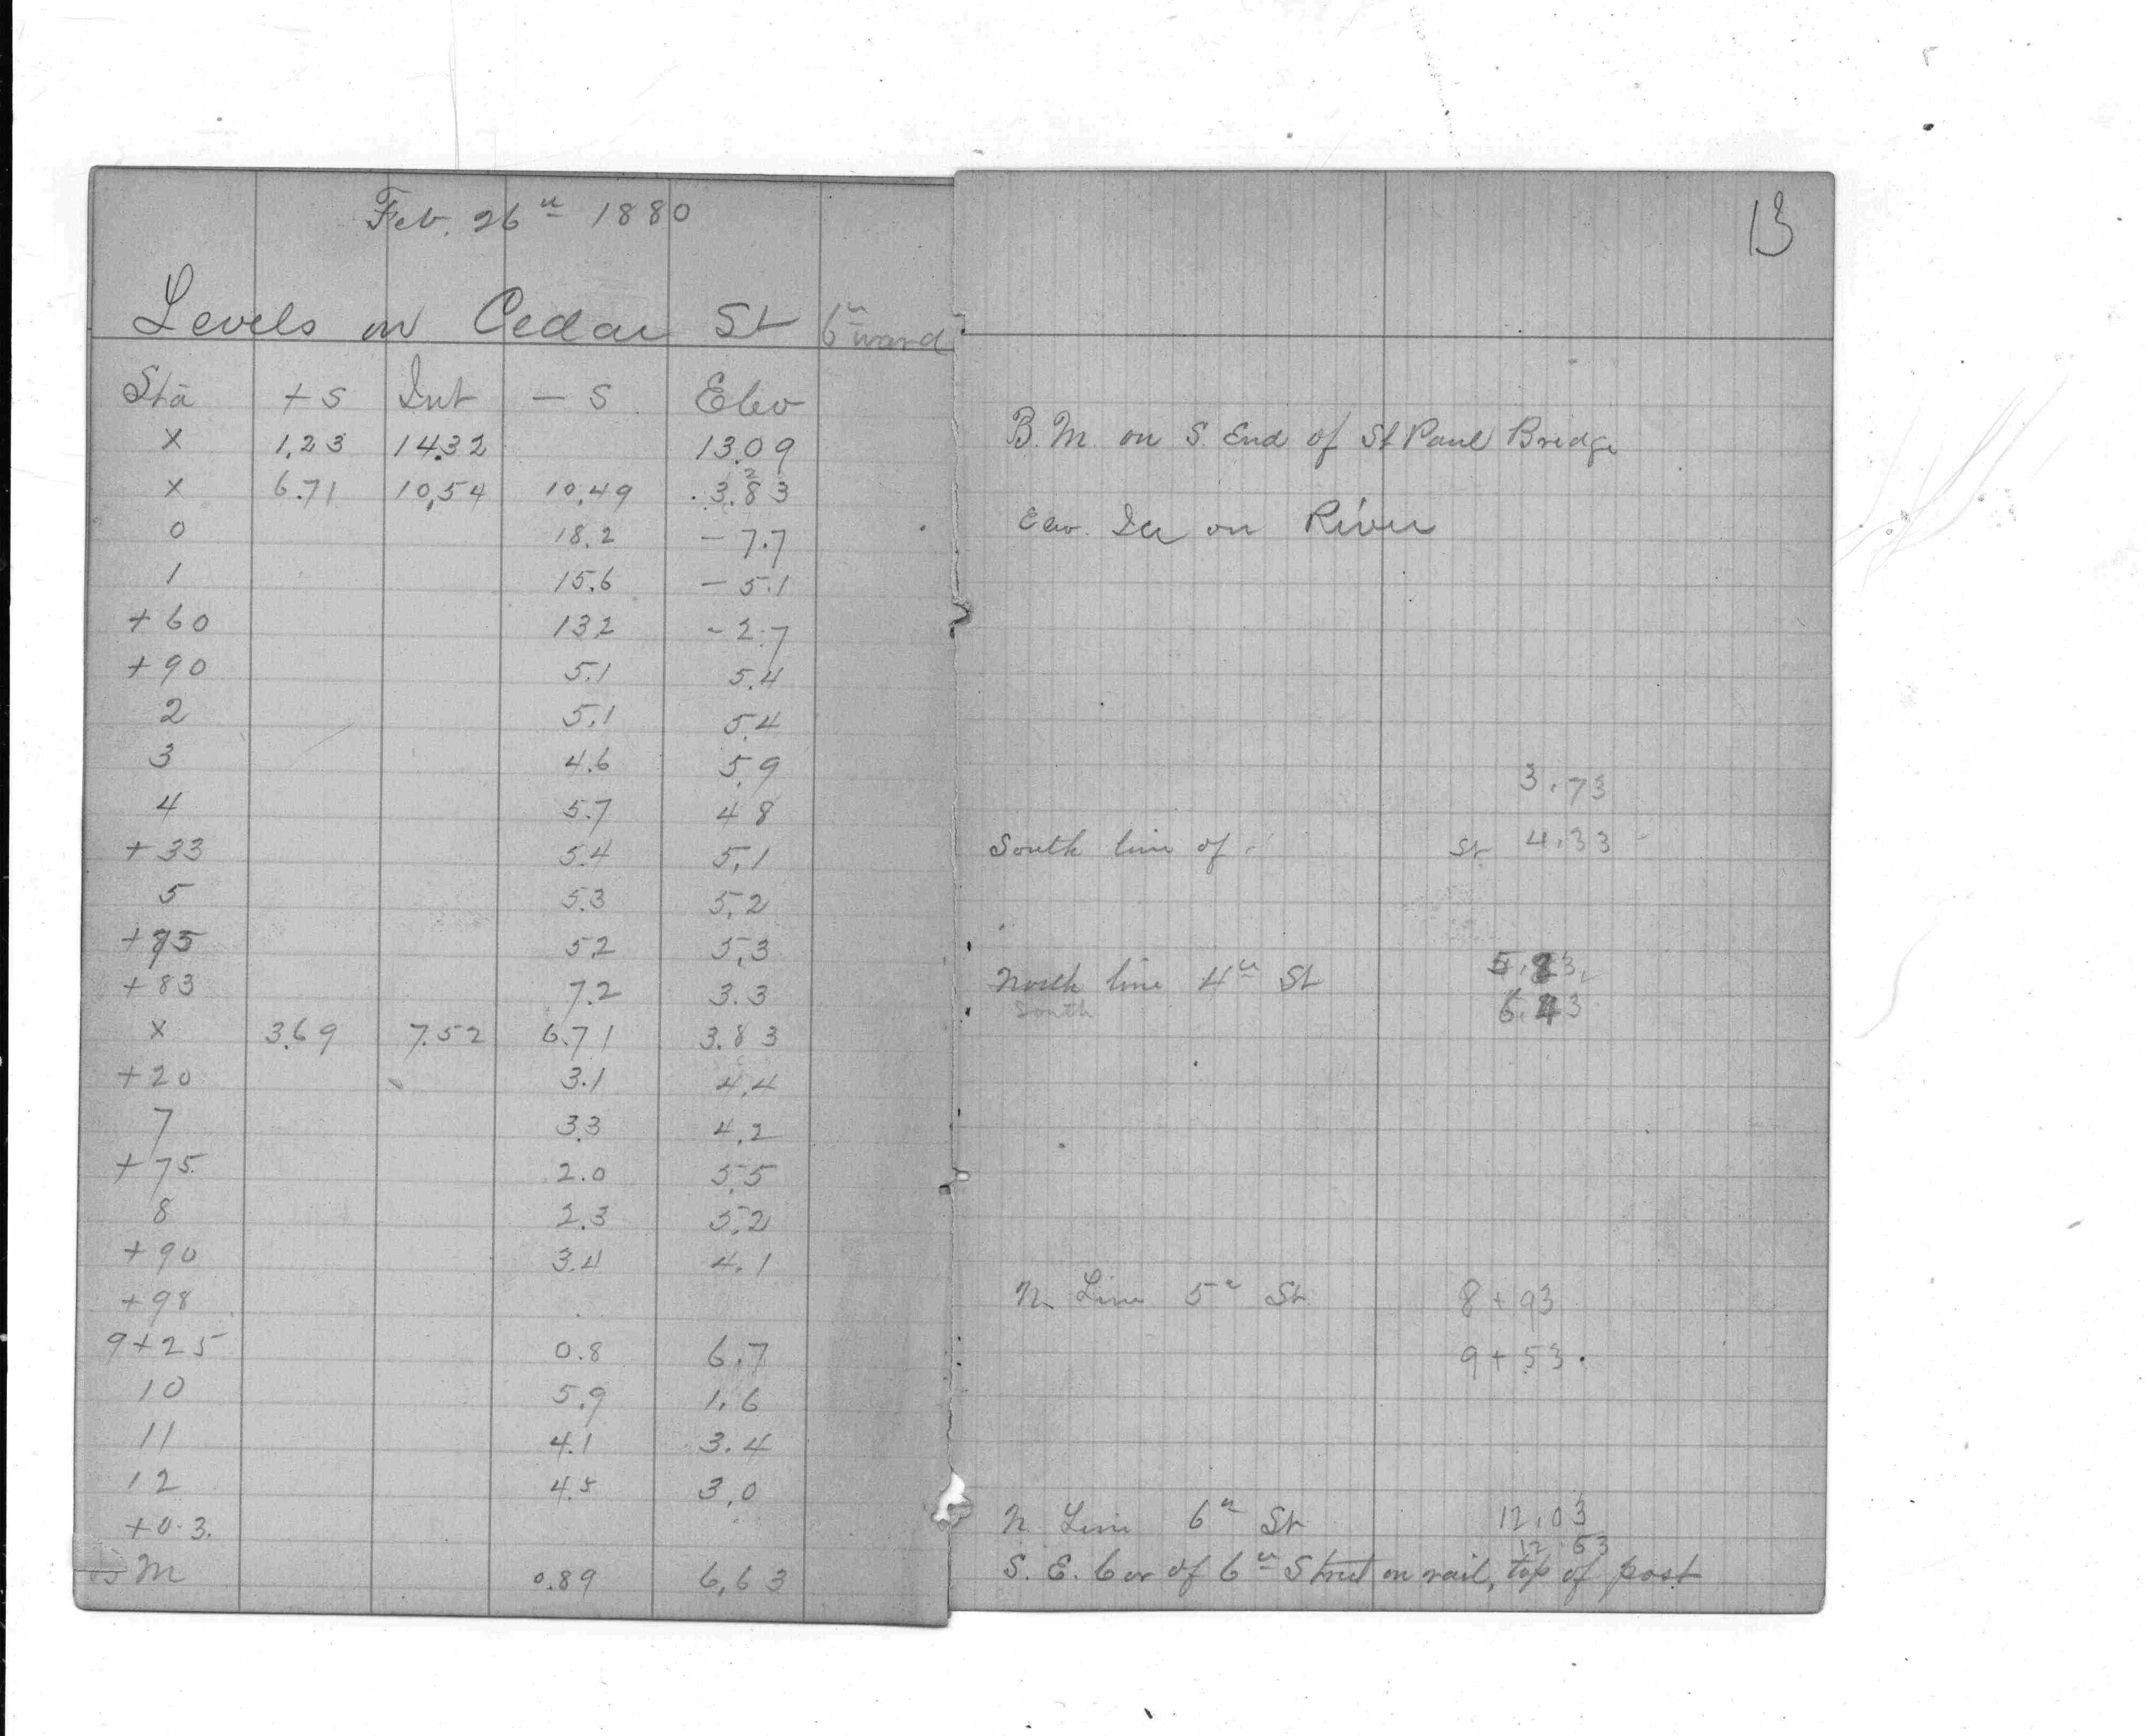 Feb. 26th 1880
13
Levels on Cedar St 6th ward
Sta +S Int -S Elev
x 1.23 14.32 13.09 B.M. on S. End of St Paul Bridge
x 6.71 10.54 10.49 3.83
0 18.2 -7.7 Elev. Ice on River
1 15.6 -5.1
+60 13.2 -2.7
+90 5.1 5.4
2 5.1 5.4
3 4.6 5.9
3.73
4 5.7 4.8
+33 5.4 5.1 South line of St. 4.33
5 5.3 5.2
+75 5.2 5.3
+83 7.2 3.3 North line 4th St
South
x 3.69 7.52 6.71 3.83
+20 3.1 4.4
7 3.3 4.2
+75 2.0 5.5
8 2.3 5.2
+90 3.4 4.1
+98 N Line 5th St 8+93
9+25 0.8 6.7 9+53
10 5.9 1.6
11 4.1 3.4
12 4.5 3.0
+0.3. N. Line 6th St 12.03
12.63
BM 0.89 6.63 S. E. Cor of 6th Street on rail, top of post